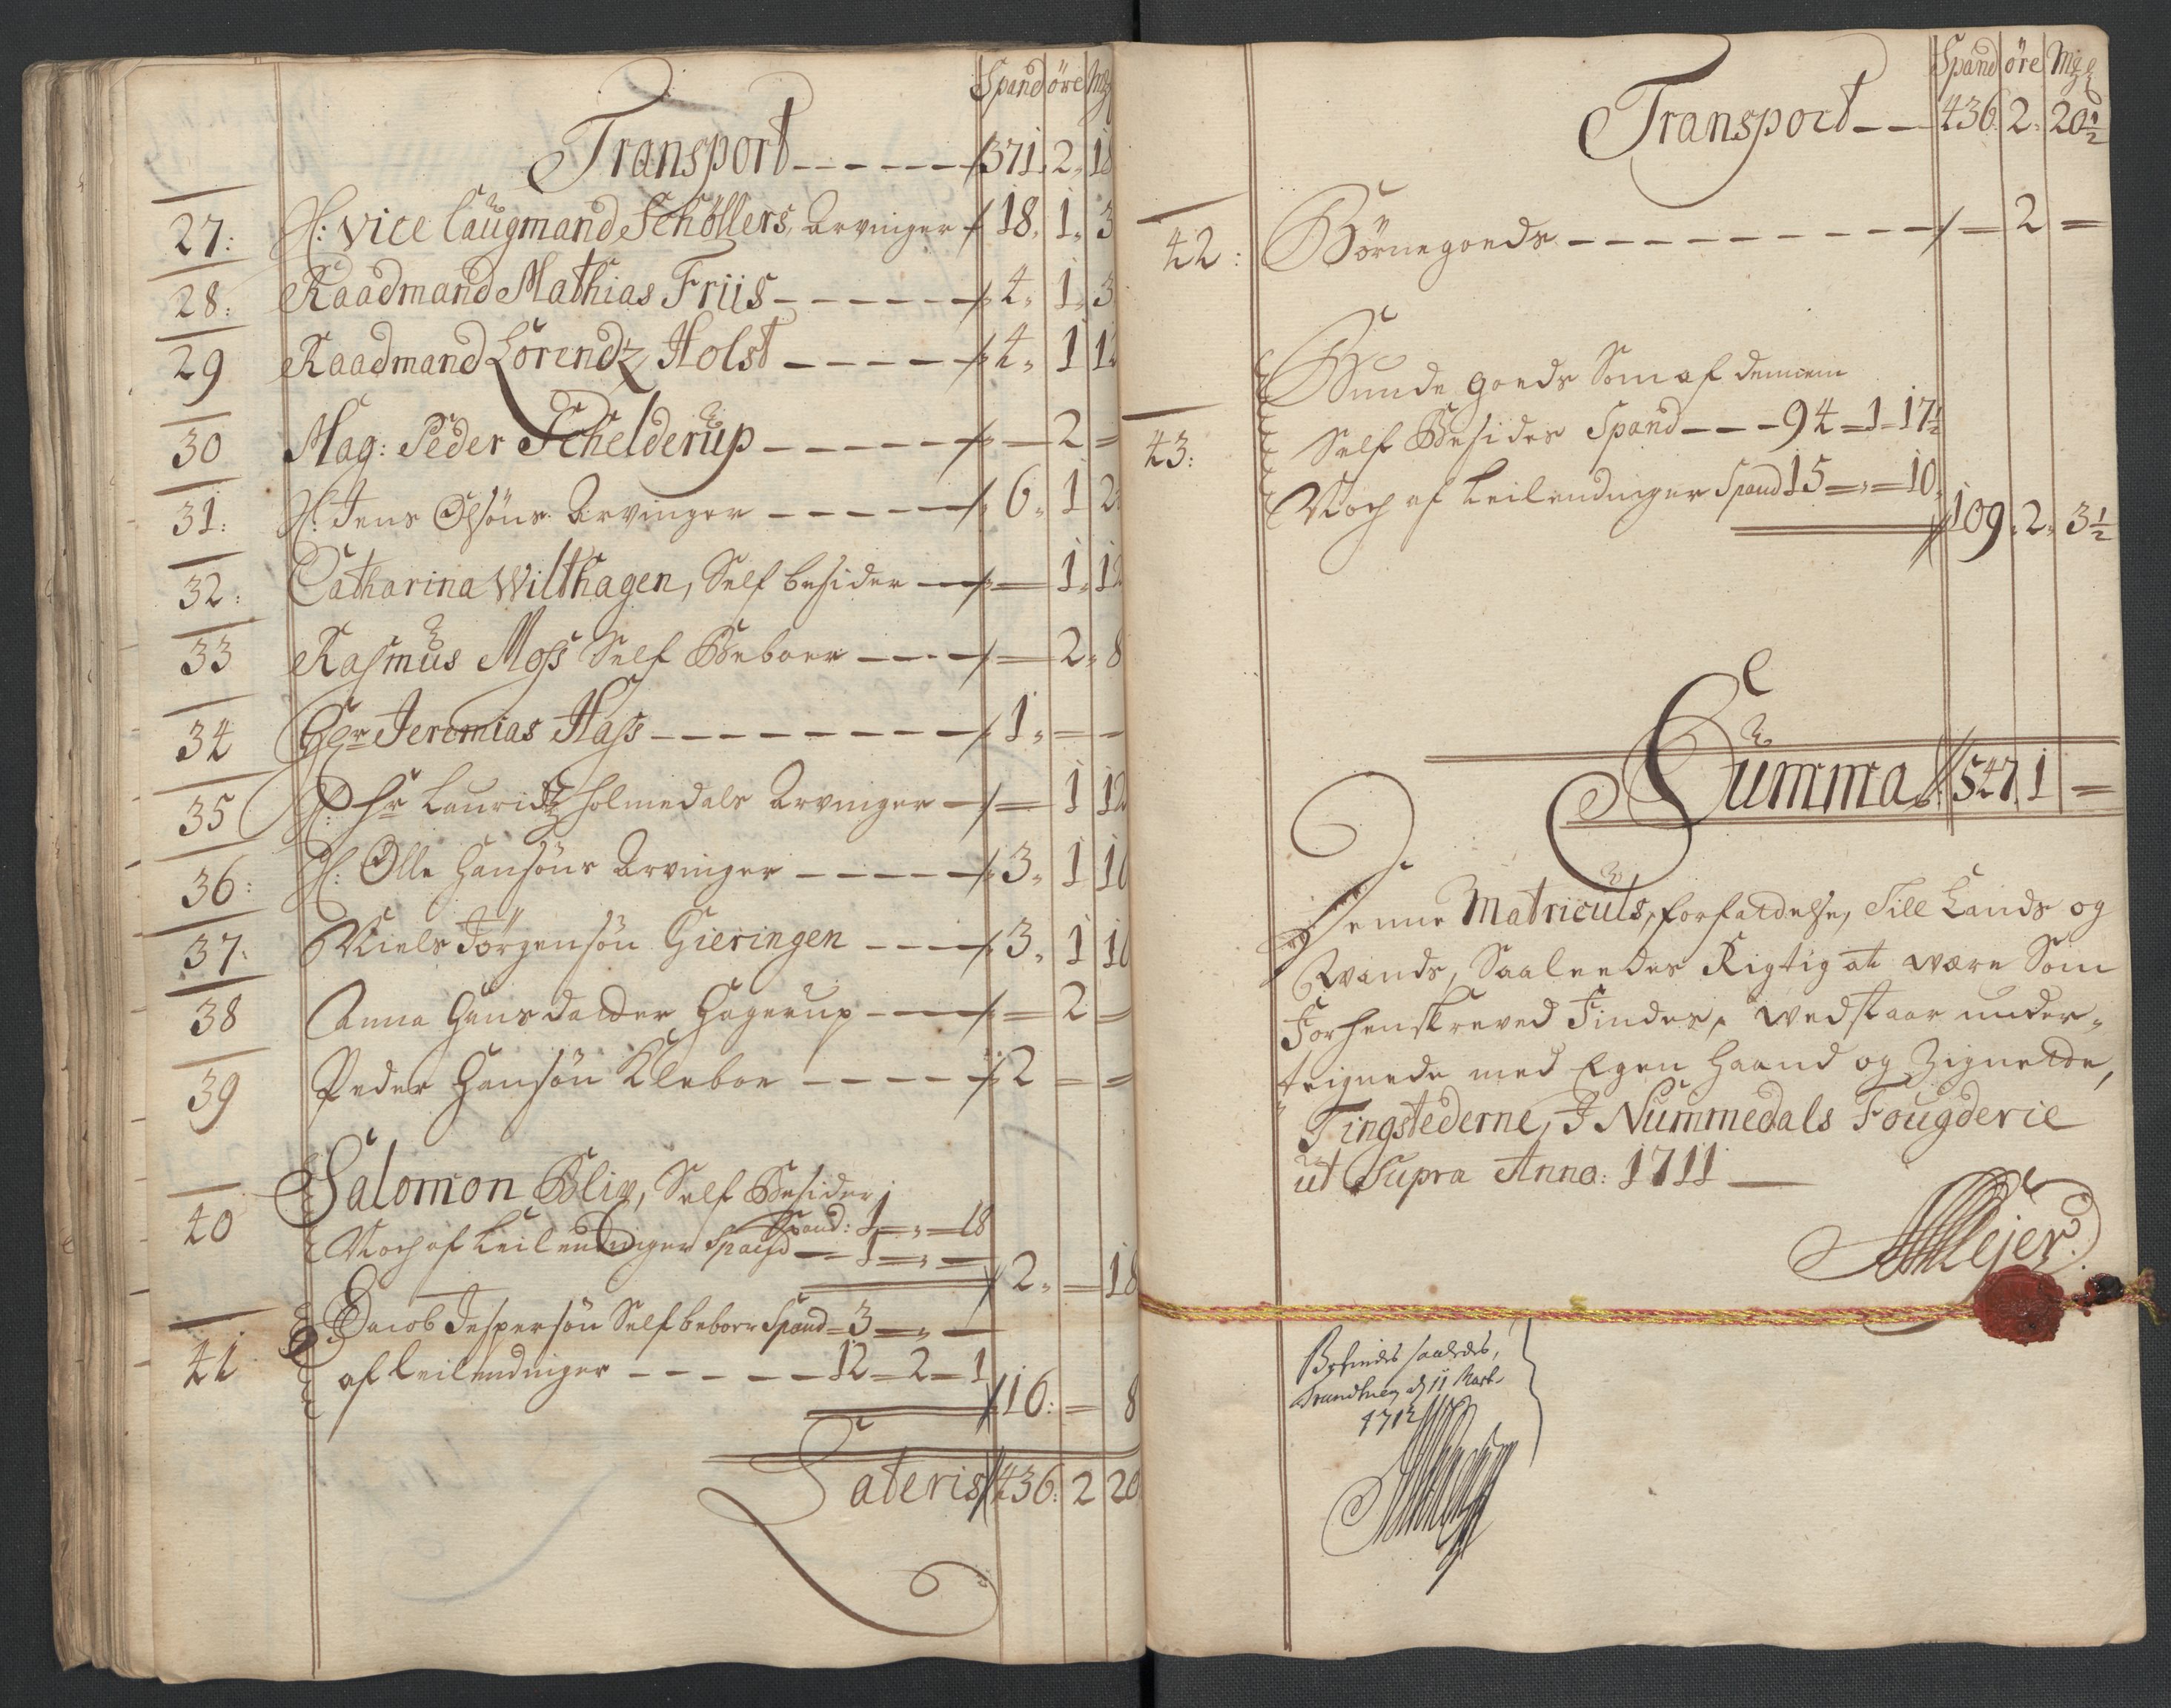 Spand öre Mg
Transport 371. 2. 18
27: H: Vice Laugmand Schøllers, Arvinger 18. 1. 3
28: Raadmand Mathias Friis 4. 1. 3
29 Raadmand Lorendtz Holst 4. 1 12
30 Mag: Peder Schelderup — 2 —
31: H: Jens Olsöns Arvinger 6. 1 2
32: Catharina Wilthagen, Self besider — 1. 12
33 Rasmus Moss Self Beboer — 2. 8
34 Hr Jeremias Hass 1. — —
35 H: Hr Lauridtz Holmedals Arvinger — 1 12
36: H: Olle Hansöns Arvinger 3. 1 10
37: Niels Jörgensön Gieringen 3. 1 10
38 Anna Hans datter Hagerup — 2 —
39 Peder Hansön Kleboe 2 — —
40 Salomon Blix, Self Besider
Spand: 1 = „ = 18
Noch af Leilendinger Spand — 1 = „ —
2. — 18
41 Jacob Jespersön Self beboer Spand = 3 = „ —
af Leilendinger 12 = 2 = 1
16: — 8
Lateris 436: 2 20
Spand öre Mg
Transport 436. 2. 20½
42: Börnegoeds — 2 —
Bunde goeds Som af dennem
43: Self Besides Spand 94 = 1 = 17½
Noch af Leilendinger Spand 15 = „ = 10
109. 2. 3½
Summa 547. 1 —
Denne Matriculs, forfattelse, Till Lands og
Vands, Saaleedes Rigtig at være Som
Forhenskreved Findes, Vedstaar under-
teignede med Egen Haand og Zignette,
Tingstederne, I Nummedals Fougderie
ut Supra Anno: 1711
Mejer
Befindes saaledes,
Trundhiem d 11 Mart.
1712